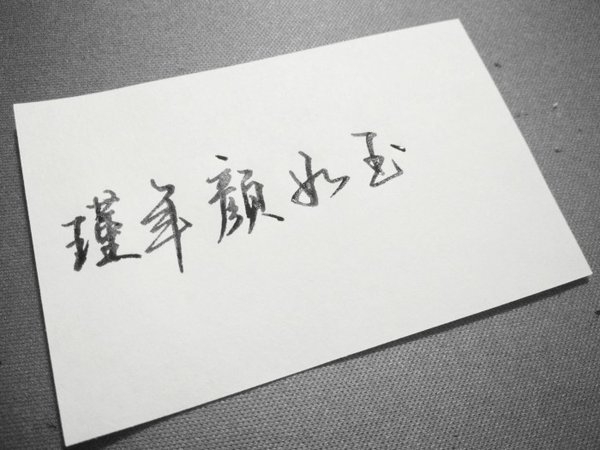 瑾年顏如玉